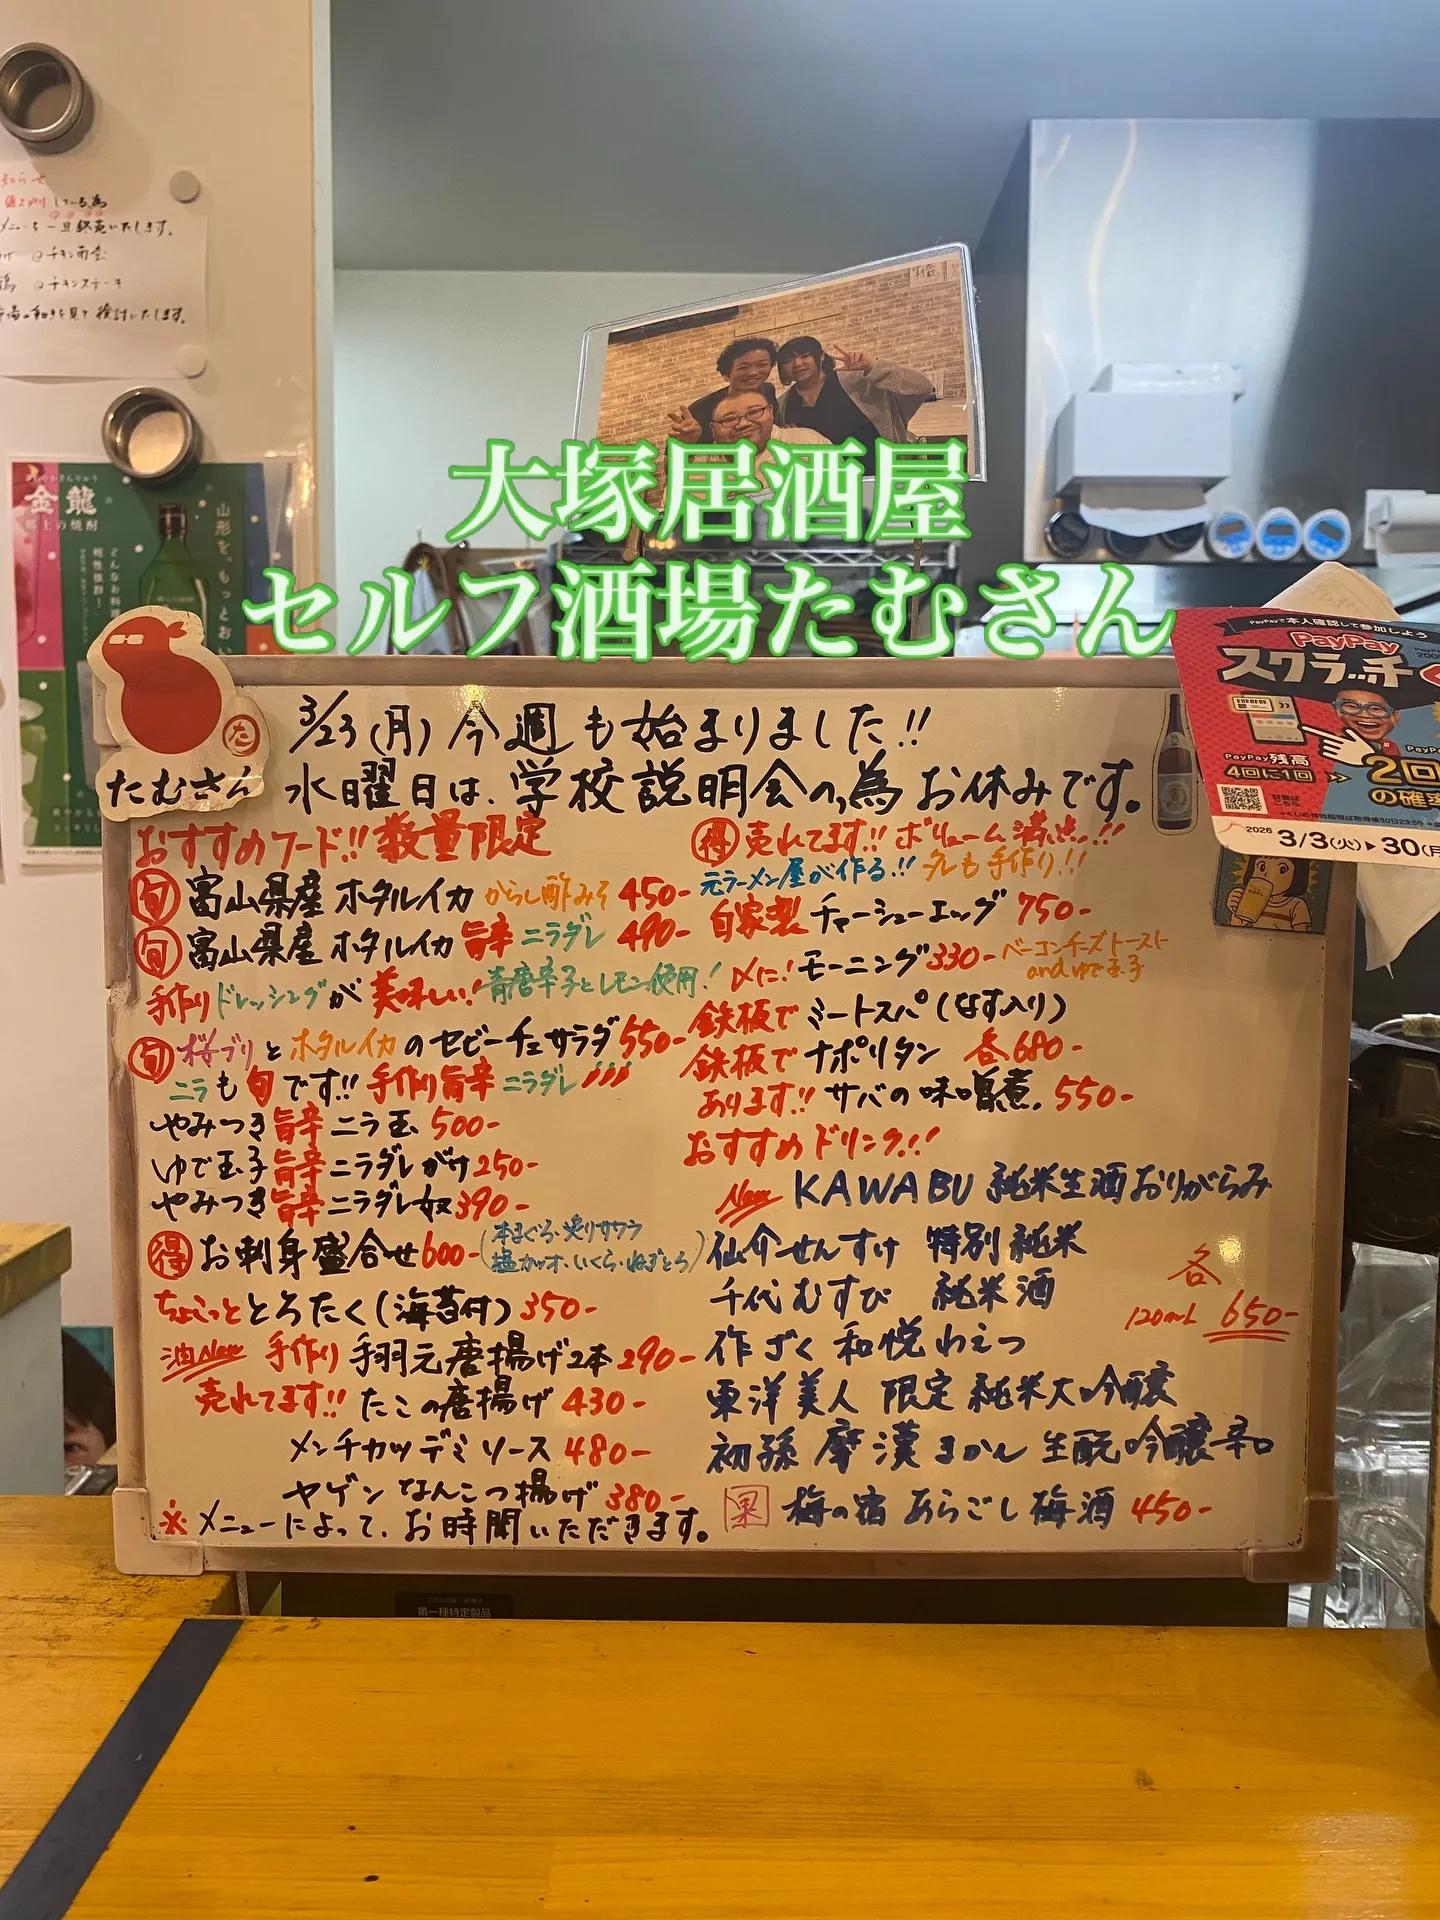 大塚居酒屋
セルフ酒場たむさん
している為
メニューを一旦終売いたします。
@チキン南蛮
@チキンステーキ
検討いたします。
金龍
郷土の焼酎
どんなお料理も
相性抜群!
山形を、もっとおい
PayPayで本人確認して参加しよう
PayPay
スクラッチ
PayPay残高
4回に1回
2回
の確率
2026 3/3(火)▶30(月
た
たむさん
3/23(月)今週も始まりました!!
水曜日は、学校説明会の為お休みです。
おすすめフード!!数量限定
旬 富山県産 ホタルイカ からし酢みそ 450-
旬 富山県産 ホタルイカ 旨辛 ニラダレ 490-
手作りドレッシングが美味しい!青唐辛子とレモン使用!
旬 桜ブリとホタルイカのセビーチェサラダ 550-
ニラも旬です!!手作り旨辛ニラダレ!!!
やみつき旨辛ニラ玉 500-
ゆで玉子旨辛ニラダレがけ 250-
やみつき旨辛ニラダレ奴 390-
得 お刺身盛合せ 600-(本まぐろ・炙りサワラ
塩カツオ・いくら・ねぎとろ)
ちょこっととろたく(海苔付) 350-
New 手作り 手羽元唐揚げ2本 290-
売れてます!! たこの唐揚げ 430-
メンチカツデミソース 480-
ヤゲンなんこつ揚げ 380-
※メニューによって、お時間いただきます。
得 売れてます!!ボリューム満点!!!
元ラーメン屋が作る!! タレも手作り!!
自家製チャーシューエッグ 750-
〆に!モーニング 330- ベーコンチーズトースト
andゆで玉子
鉄板でミートスパ(なす入り)
鉄板でナポリタン 各680-
あります!!サバの味噌煮 550-
おすすめドリンク!!
New KAWABU 純米生酒おりがらみ
仙介せんすけ 特別純米
千代むすび 純米酒
各
120mL 650-
作ざく 和悦わえつ
東洋美人 限定純米大吟醸
初孫 摩漢まかん 生酛吟醸辛口
果 梅の宿 あらごし梅酒 450-
第一種特定製品